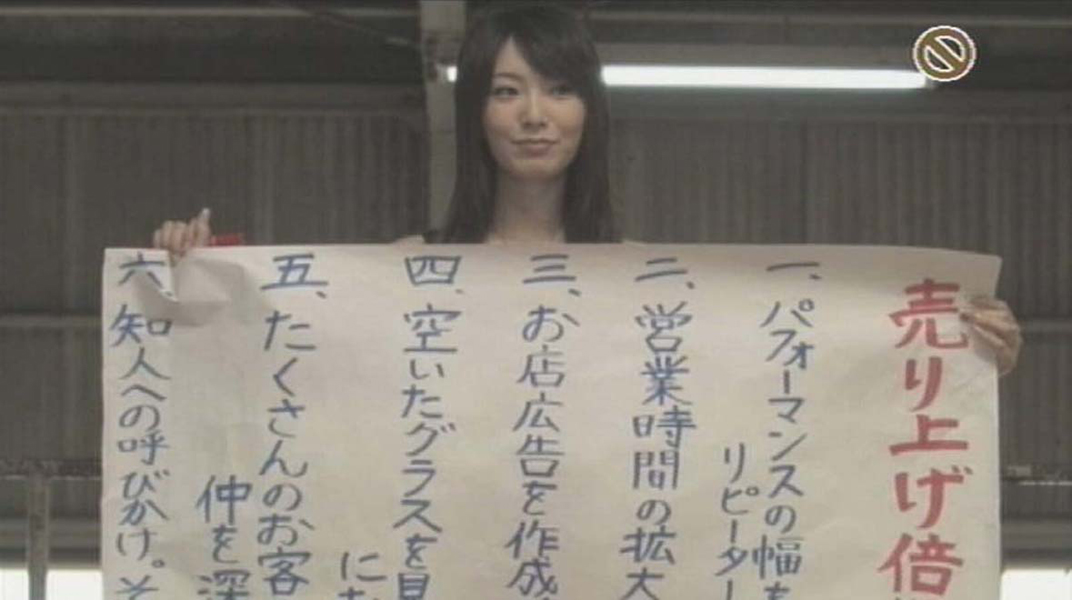 売り上げ倍
一、パフォーマンスの幅も
リピーター
二、営業時間の拡大
三、お店広告を作成
四、空いたグラスを見
にな
五、たくさんのお客
仲を深
六、知人への呼びかけ。そ